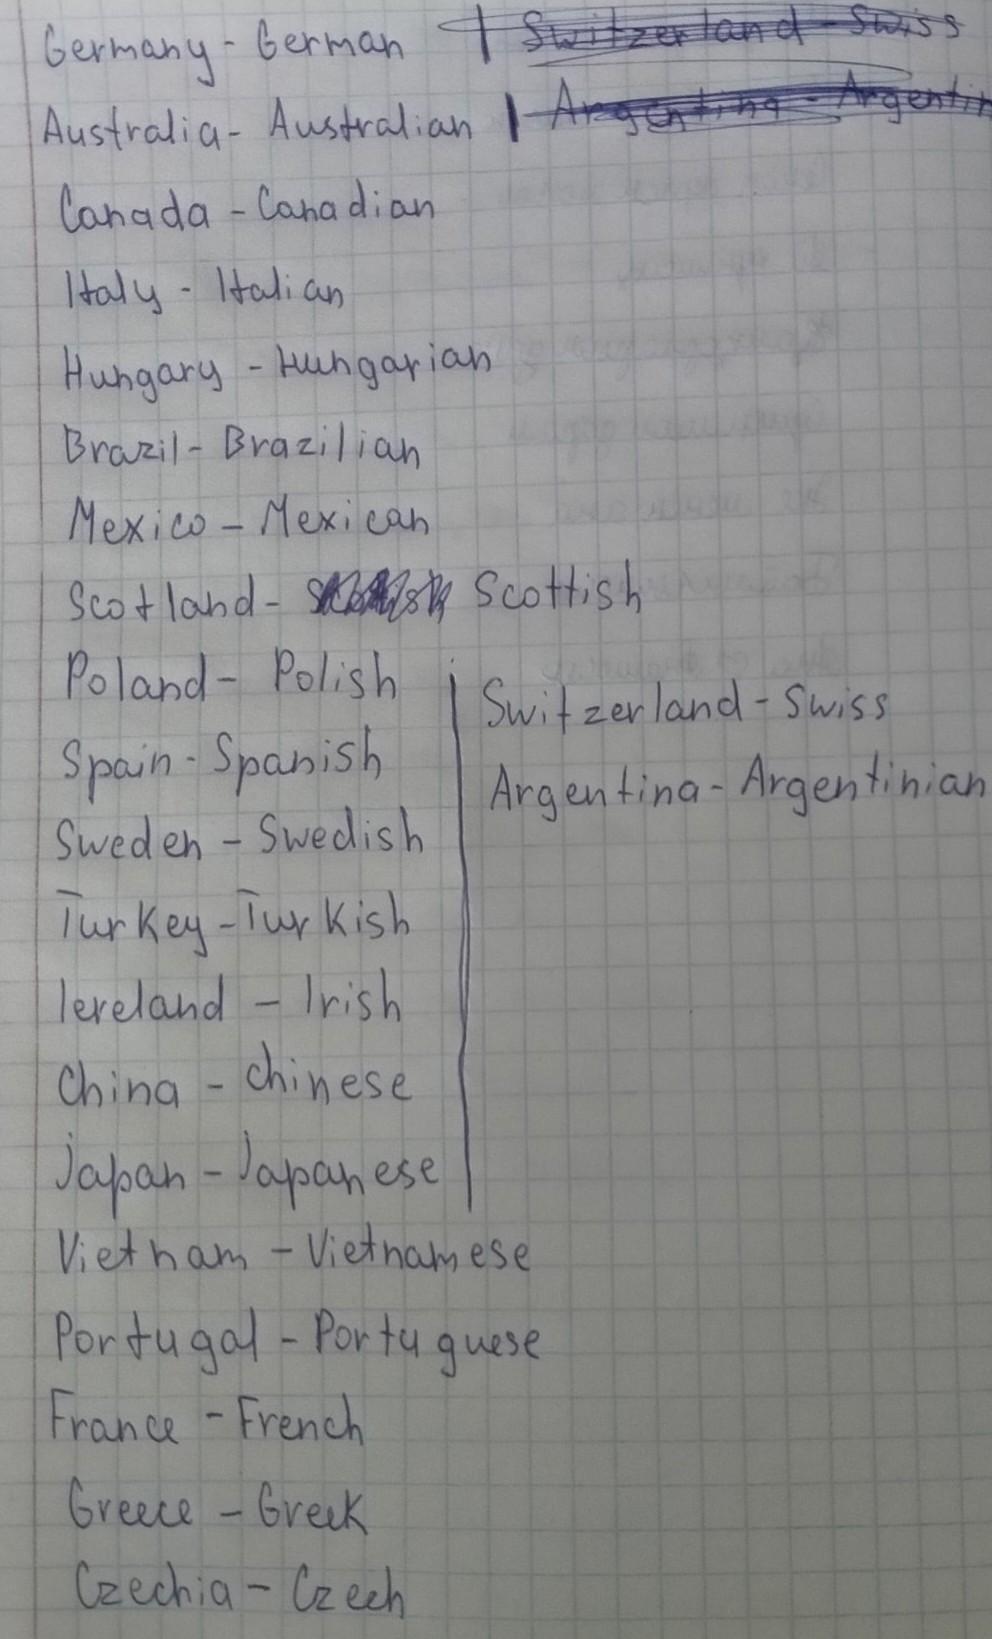 Germany - German
Switzerland - Swiss
Australia - Australian
Argentina - Argentin
Canada - Canadian
Italy - Italian
Hungary - Hungarian
Brazil - Brazilian
Mexico - Mexican
Scotland - Scottish
Poland - Polish
Spain - Spanish
Sweden - Swedish
Turkey - Turkish
Iereland - Irish
China - chinese
Japan - Japanese
Vietnam - Vietnamese
Portugal - Portuguese
France - French
Greece - Greek
Czechia - Czech
Switzerland - Swiss
Argentina - Argentinian